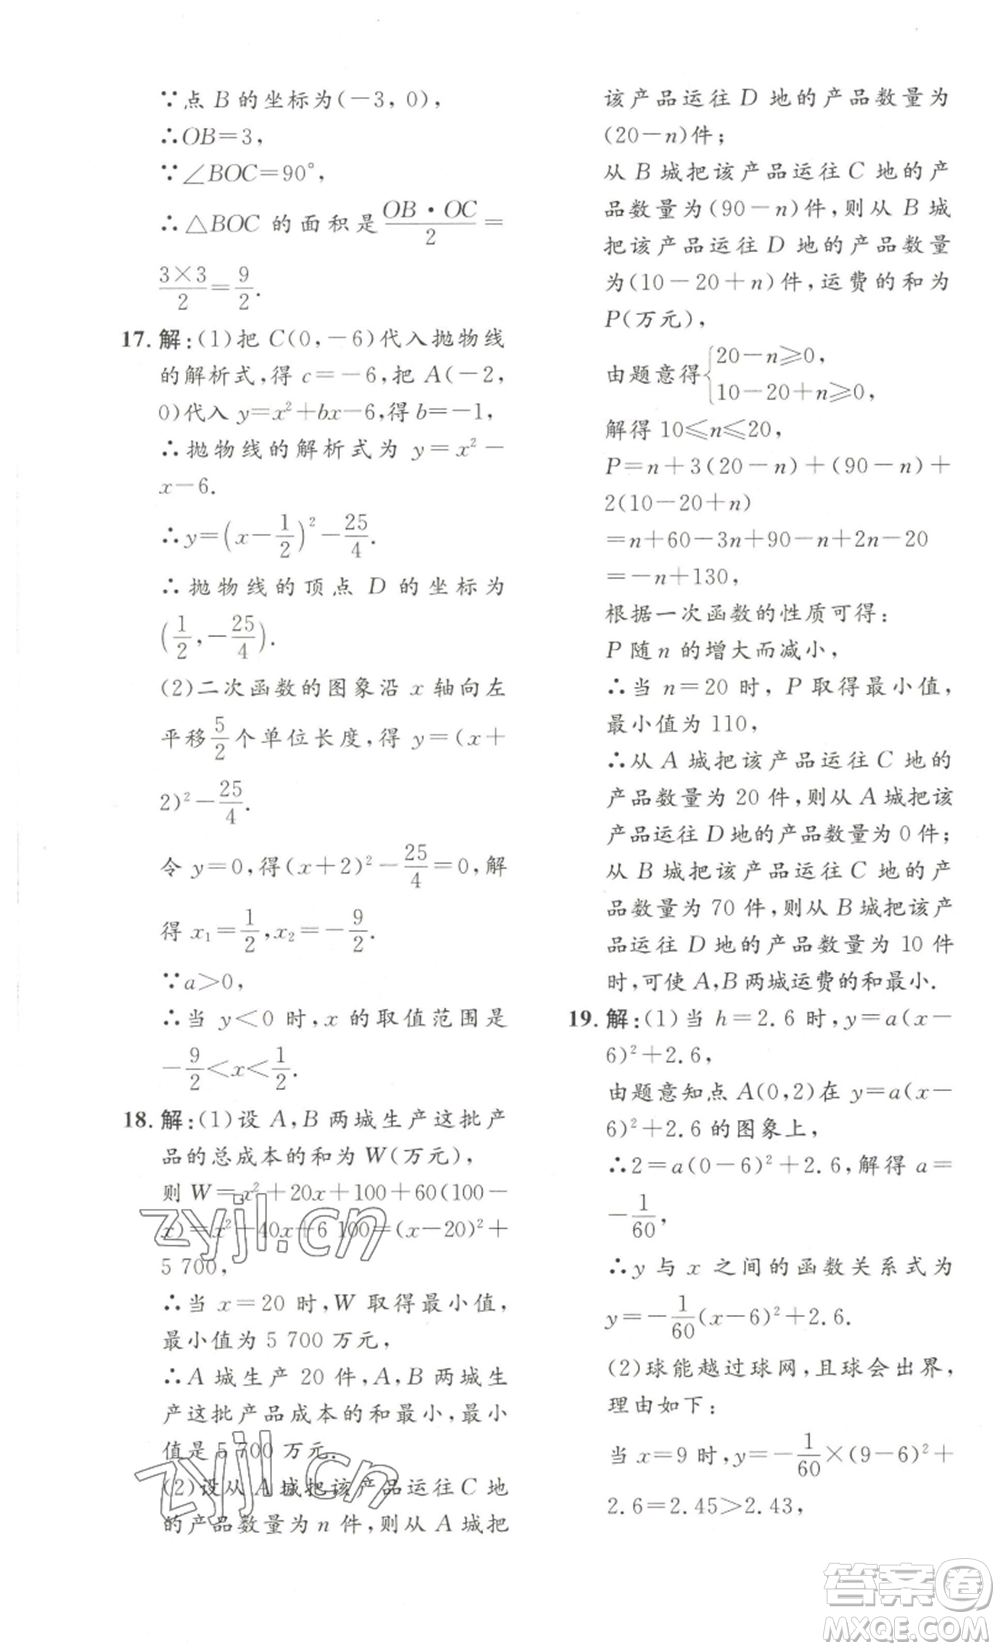 ∵点 B 的坐标为(−3, 0),
∴OB=3,
∵∠BOC=90°,
∴△BOC 的面积是 OB·OC/2 =
3×3/2 = 9/2.
17. 解:(1)把 C(0,−6)代入抛物线
的解析式,得 c=−6,把 A(−2,
0)代入 y=x²+bx−6,得 b=−1,
∴抛物线的解析式为 y=x²−
x−6.
∴y=(x−1/2)²−25/4.
∴抛物线的顶点 D 的坐标为
(1/2,−25/4).
(2)二次函数的图象沿 x 轴向左
平移5/2个单位长度,得 y=(x+
2)²−25/4.
令 y=0,得(x+2)²−25/4=0,解
得 x₁=1/2,x₂=−9/2.
∵a>0,
∴当 y<0 时,x 的取值范围是
−9/2<x<1/2.
18. 解:(1)设 A,B 两城生产这批产
品的总成本的和为 W(万元),
则 W=x²+20x+100+60(100−
x)=x²−40x+6 100=(x−20)²+
5 700,
∴当 x=20 时,W 取得最小值,
最小值为 5 700 万元,
∴A 城生产 20 件,A,B 两城生
产这批产品成本的和最小,最小
值是 5 700 万元.
(2)设从 A 城把该产品运往 C 地
的产品数量为 n 件,则从 A 城把
该产品运往 D 地的产品数量为
(20−n)件;
从 B 城把该产品运往 C 地的产
品数量为(90−n)件,则从 B 城
把该产品运往 D 地的产品数量
为(10−20+n)件,运费的和为
P(万元),
由题意得{20−n≥0,
10−20+n≥0,
解得 10≤n≤20,
P=n+3(20−n)+(90−n)+
2(10−20+n)
=n+60−3n+90−n+2n−20
=−n+130,
根据一次函数的性质可得:
P 随 n 的增大而减小,
∴当 n=20 时,P 取得最小值,
最小值为 110,
∴从 A 城把该产品运往 C 地的
产品数量为 20 件,则从 A 城把该
产品运往 D 地的产品数量为 0 件;
从 B 城把该产品运往 C 地的产
品数量为 70 件,则从 B 城把该产
品运往 D 地的产品数量为 10 件
时,可使 A,B 两城运费的和最小.
19. 解:(1)当 h=2.6 时,y=a(x−
6)²+2.6,
由题意知点 A(0,2)在 y=a(x−
6)²+2.6 的图象上,
∴2=a(0−6)²+2.6,解得 a=
−1/60,
∴y 与 x 之间的函数关系式为
y=−1/60(x−6)²+2.6.
(2)球能越过球网,且球会出界,
理由如下:
当 x=9 时,y=−1/60×(9−6)²+
2.6=2.45>2.43,
zyjl.cn
zyjl.cn
答案圈
MXQE.COM